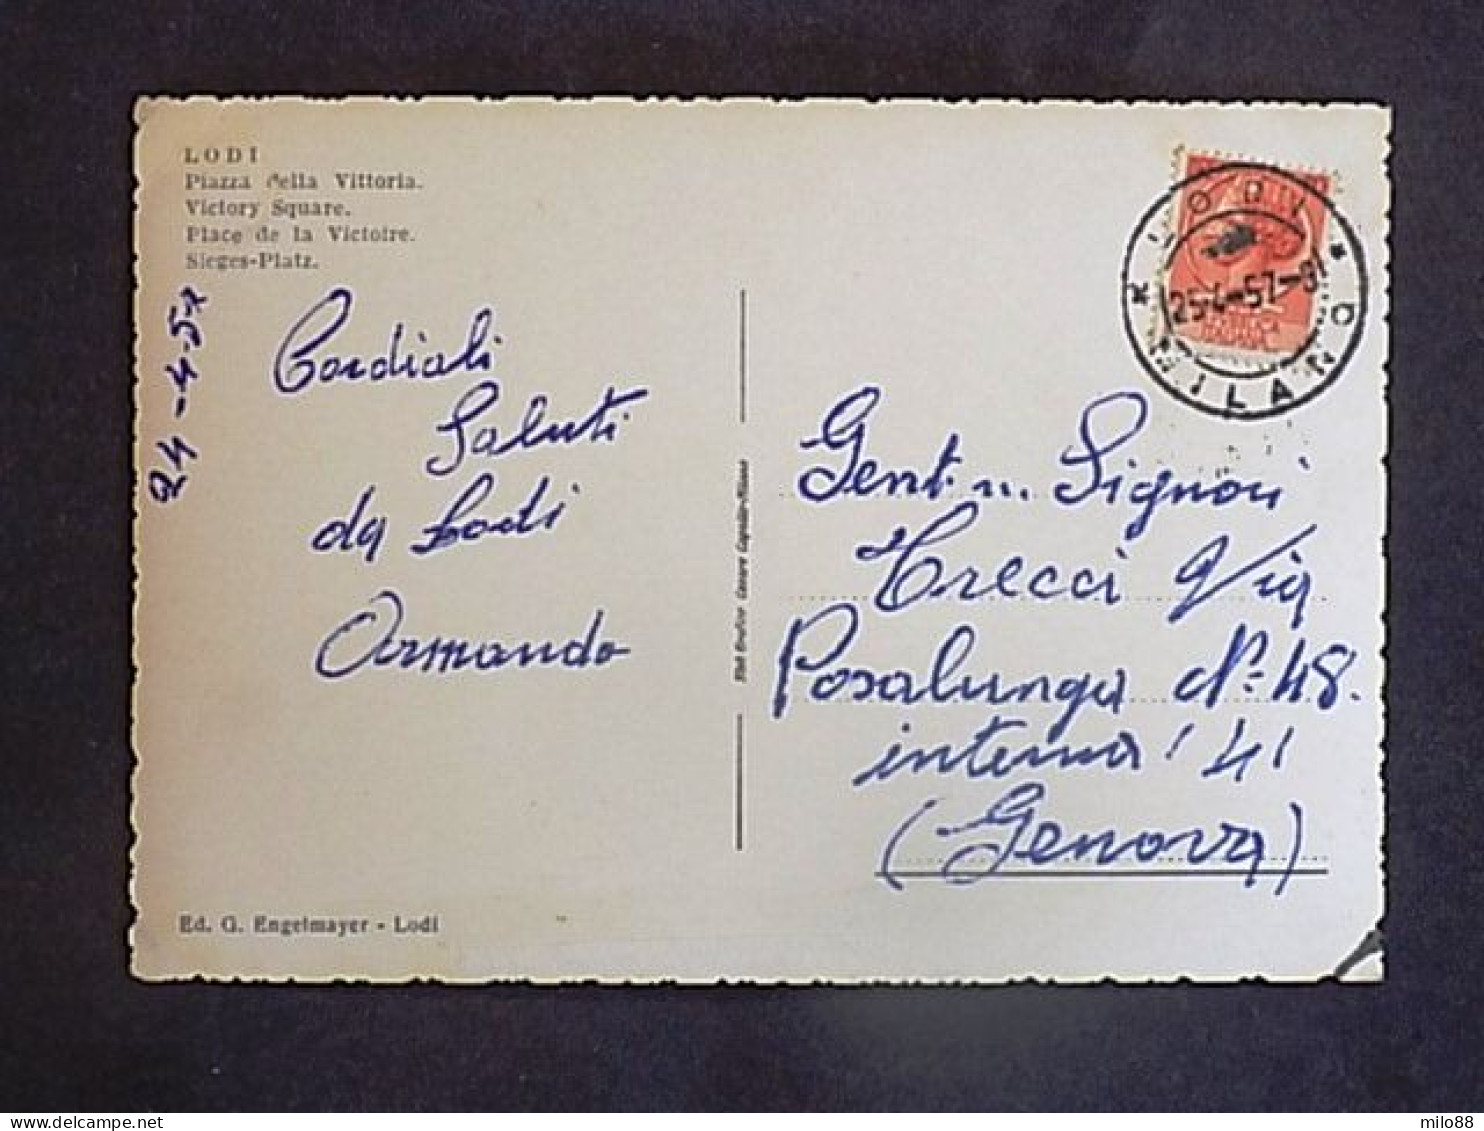 LODI
Piazza della Vittoria.
Victory Square.
Place de la Victoire.
Sieges-Platz.
24-4-57
Cordiali
Saluti
da Lodi
Armando
Ed. G. Engelmayer - Lodi
LODI
25-4-57-9
MILANO
Gent. Signori
Trecci Via
Posalunga N° 48.
interna 41
(Genova)
milo88